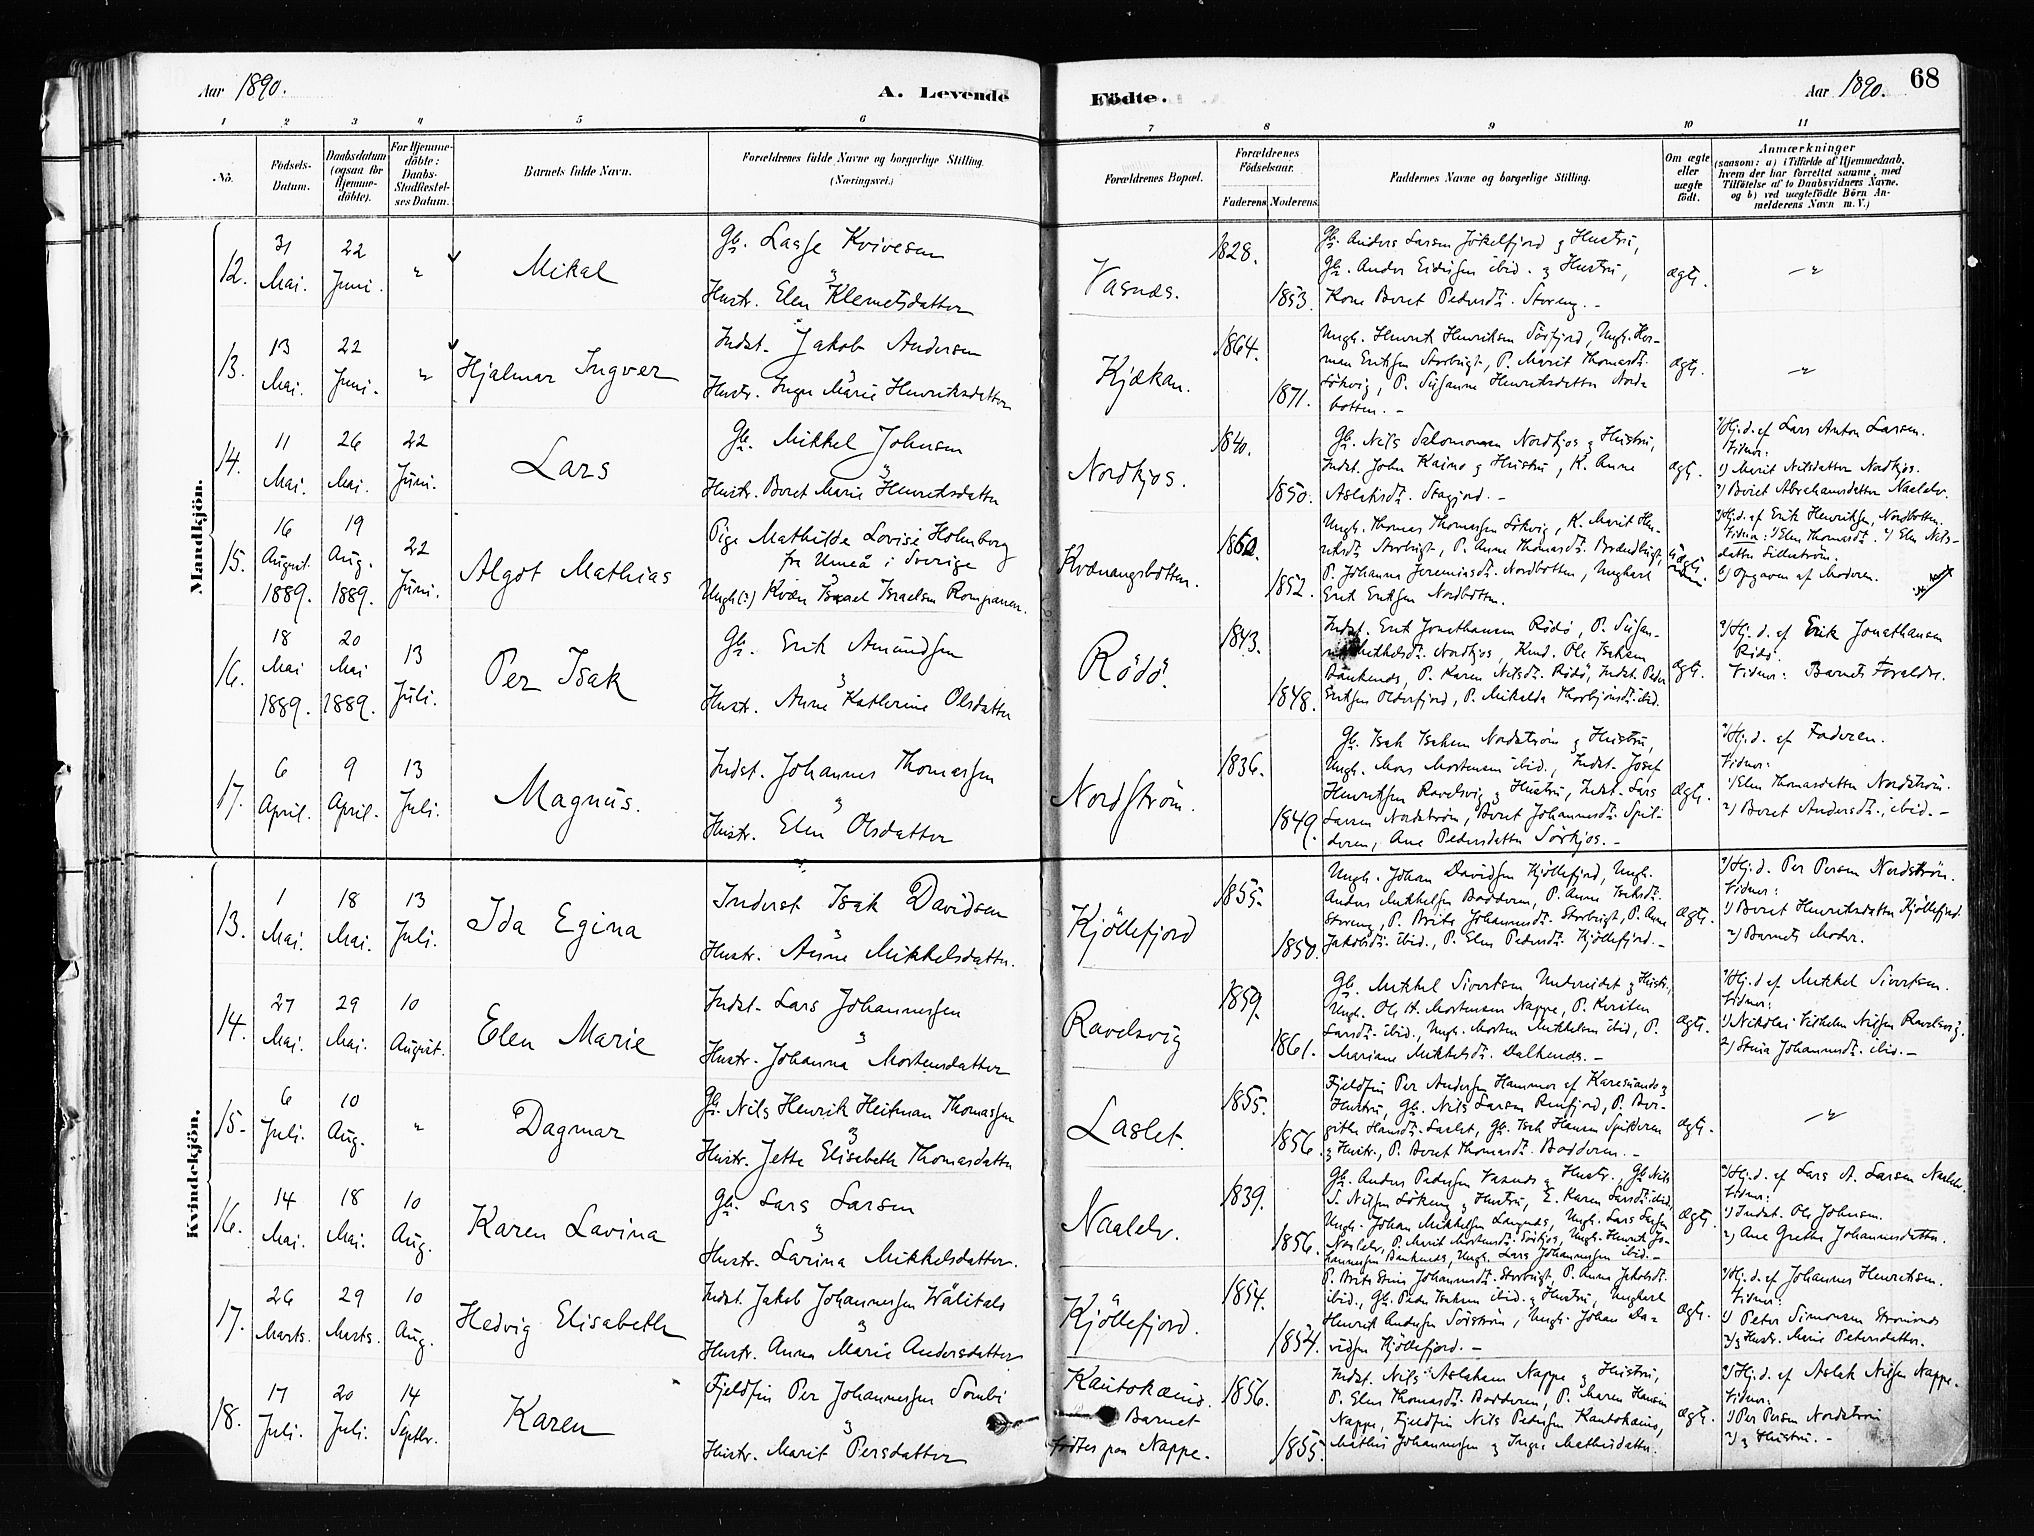 Aar 1890.
A. Levende
Födte.
Aar 1890.
68
1 2 3 4 5 6 7 8 9 10 11
Nö.
Födsels-
Datum.
Daabsdatum
(ogsaa for
Hjemme-
döbte).
For Hjemme-
döbte:
Daabs-
Stadfæstel-
ses Datum.
Barnets fulde Navn.
Forældrenes fulde Navne og borgerlige Stilling.
(Næringsvei.)
Forældrenes Bopæl.
Forældrenes
Födselsaar.
Faderens. Moderens.
Faddernes Navne og borgerlige Stilling.
Om ægte
eller
uægte
födt.
Anmærkninger
(saasom: a) i Tilfælde af Hjemmedaab,
hvem der har forrettet samme, med
Tilföielse af to Daabsvidners Navne,
og b) ved uægtefödte Börn An-
melderens Navn m. V.)
Mandkjön.
12.
31
Mai.
22
Juni.
"
Mikal
Gb. Lasse Kvivesen
&
Hustr. Elen Klemetsdatter
Vasnes.
1828.
1853.
Gb. Anders Larsen Jökelfjord & Hustru,
Gb. Anders Eidissen ibid. & Hustru,
Kone Beret Pedersdtr. Storeng. -
ægt.
- " -
13.
13
Mai.
22
Juni.
"
Hjalmar Ingver
Indst. Jakob Andersen
&
Hustr. Inger Marie Henriksdatter
Kjækan.
1864.
1871.
Ungk. Henrik Henriksen Sörfjord, Ungk. Her-
man Eriksen Storbugt, P. Marit Thomasdtr.
Sökvig, P. Susanne Henriksdatter Nord-
botten. -
ægt.
- " -
14.
11
Mai.
26
Mai.
22
Juni.
Lars
Gb. Mikkel Johnsen
&
Hustr. Beret Marie Henriksdatter
Nordkjos.
1840.
1850.
Gb. Nils Salomonsen Nordkjos & Hustru,
Indst. John Kaino & Hustru, K. Anne
Aslaksdtr. Stagjord. -
ægt.
a) Hj.d. af Lars Anton Larsen.
Vidner:
1) Marit Nilsdatter Nordkjos.
2) Beret Abrahamsdatter Naalelv.
15.
16
August
1889.
19
Aug.
1889.
22
Juni.
Algot Mathias
Pige Mathilde Lovise Holmberg
fra Umeå i Sverige
&
Ungk(:) Kvæn Israel Israelsen Rompanen.
Kvænangsbotten.
1860.
1852.
Ungk. Thomas Thomassen Sökvig, K. Marit Hen-
riksdtr. Storbugt, P. Anne Thomasdtr. Brændbugt,
P. Johanna Jeremiasdtr. Nordbotten, Ungkarl
Erik Eriksen Nordbotten.
a) Hj.d. af Erik Henriksen, Nordbotten.
Vidner: 1) Elen Thomasdtr. 2) Elen Nils-
datter
b) Opgaven af Moderen.
16.
18
Mai
1889.
20
Mai
1889.
13
Juli.
Per Isak
Gb. Erik Amundsen
&
Hustr. Anne Katherine Olsdatter
Rödö.
1843.
1848.
Indst. Erik Jonathansen Rödö, P. Susan-
Mikkelsdtr. Nordkjos, Kmd. Ole Isaksen
Bankenes, P. Karen Nilsdtr. Rödö, Indst. Peder
Eriksen Olderfjord, P. Mikalda Thorbjörnsdtr. ibid.
ægt.
a) Hj.d. af Erik Jonathansen
Rödö.
Vidner: Barnets Forældre.
17.
6
April.
9
April.
13
Juli.
Magnus.
Indst. Johannes Thomassen
&
Hustr. Elen Olsdatter
Nordström.
1836.
1849.
Gb. Isak Isaksen Nordström & Hustru,
Ungk. Mons Mortensen ibid., Indst. Josef
Henriksen Ravelsvig & Hustru, Indst. Lars
Larsen Nordström, Beret Johannesdtr. Spil-
deren, Ane Pedersdatter Sörkjos. -
ægt.
a) Hj.d. af Faderen.
Vidner:
1) Elen Thomasdatter Nordström.
2) Beret Andersdtr., ibid. -
Kvindekjön.
13.
1
Mai.
18
Mai.
13
Juli.
Ida Egina
Inderst Isak Davidsen
&
Hustr. Anne Mikkelsdatter.
Kjöllefjord
1855.
1850.
Ungk. Johan Davidsen Kjöllefjord, Ungk.
Anders Mikkelsen Badderen, P. Anne Isaksdtr.
Storeng, P. Brita Johannesdtr. Storbugt, P. Anne
Jakobsdtr. ibid., P. Elen Pedersdtr. Kjöllefjord. -
ægt.
a) Hj.d. Per Persen Nordström.
Vidner:
1) Beret Henriksdatter Kjöllefjord.
2) Barnets Moder.
14.
27
Mai.
29
Mai.
10
August.
Elen Marie
Indst. Lars Johannessen
&
Hustr. Johanna Mortensdatter
Ravelsvig
1859.
1861.
Gb. Mikkel Sivertsen Undereidet & Hustr.,
Ungk. Ole H. Mortensen Nappe, P. Kirsten
Larsdtr. ibid., Ungk. Morten Mikkelsen ibid., P.
Mariane Mikkelsdtr. Dalkenes. -
ægt.
a) Hj.d. af Mikkel Sivertsen.
Vidner:
1) Nikolai Vilhelm Nilsen Ravelsvig.
2) Stina Johannesdtr. ibid. -
15.
6
Juli.
10
Aug.
"
Dagmar
Gb. Nils Henrik Heitman Thomassen
&
Hustr. Jette Elisabeth Thomasdatter
Laslet.
1855.
1856.
Fjeldfin Per Andersen Hammer af Karesuando &
Hustru, Gb. Nils Larsen Renfjord, P. Bir-
githe Hansdtr. Laslet, Gb. Isak Hansen Spilderen
& Hustr., P. Beret Thomasdtr. Badderen. -
ægt.
- " -
16.
14
Mai.
18
Mai.
10
Aug.
Karen Lavina
Gb. Lars Larsen
&
Hustr. Larina Mikkelsdatter.
Naalelv.
1839.
1856.
Gb. Anders Pedersen Vasnes & Hustr., Gb. Nils
S. Nilsen Lökeng & Hustru, E. Karen Larsdtr. ibid.,
Ungk. Johan Mikkelsen Langnes, Ungk. Lars Larsen
Naalelv, P. Marit Mortensdtr. Sörkjos, Ungk. Henrik Jo-
hannesen Bankenes, Ungk. Lars Johannessen ibid. -
ægt.
a) Hj.d. af Lars A. Larsen Naalelv.
Vidner:
1) Indst. Ole Johnsen.
2) Ane Grethe Johannesdatter.
17.
26
Marts.
29
Marts.
10
Aug.
Hedvig Elisabeth
Indst. Jakob Johannessen Wälitalo
&
Hustr. Anna Marie Andersdatter
Kjöllefjord.
1854.
1854.
P. Brita Stina Johannesdtr. Storbugt, P. Anna Jakobsdtr.
ibid., Gb. Peder Isaksen ibid. & Hustru, Ungkarl
Henrik Andersen Sörström, Ungk. Johan Da-
vidsen Kjöllefjord. -
ægt.
a) Hj.d. af Johannes Henriksen.
Vidner:
1) Peter Simonsen Strömnes
2) & Hustr. Marie Petersdatter.
18.
17
Juli.
20
Juli.
14
Septbr.
Karen
Fjeldfin Per Johannessen Sombi
&
Hustr. Marit Persdatter
Kautokeino.
Barnet
födtes paa Nappe.
1856.
1855.
Indst. Nils Aslaksen Nappe & Hustru,
P. Elen Thomasdtr. Badderen, P. Maren Hansen
Nappe, Fjeldfin Nils Pedersen Kautokeino,
Mathis Johannessen & Inger Mathisdatter.
ægt.
a) Hj.d. af Aslak Nilsen Nappe.
Vidner:
1) Per Persen Nordström
2) & Hustru. -